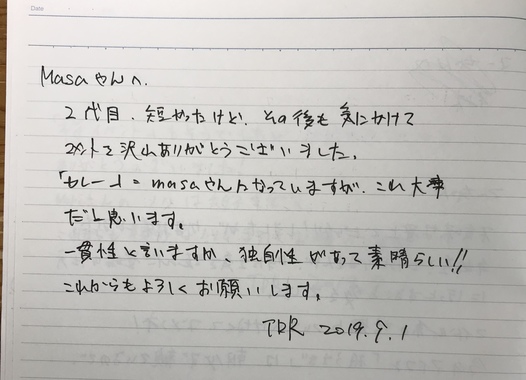 Date
Masaやんへ.
2代目、短かったけど、その後も気にかけて
コメントを沢山ありがとうございました。
「カレー」=masaやんになっていますが、これ大事
だと思います。
一貫性と言いますか、独自性があって素晴らしい!!
これからもよろしくお願いします。
TDR 2019.9.1